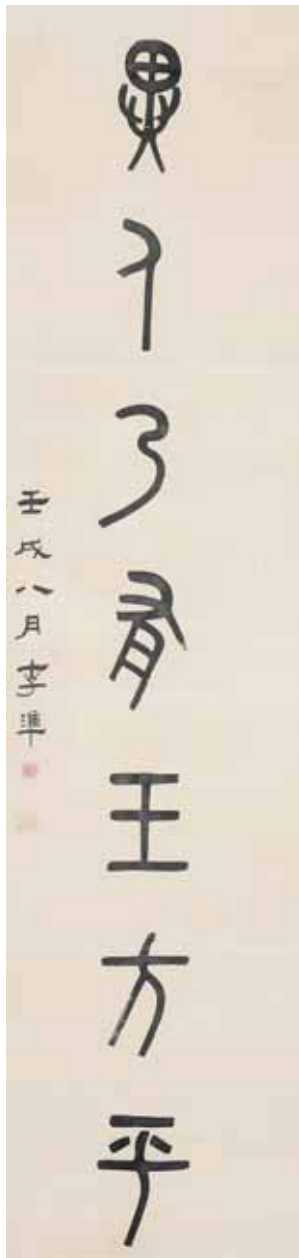 異人乃有王方平
壬戌八月李準